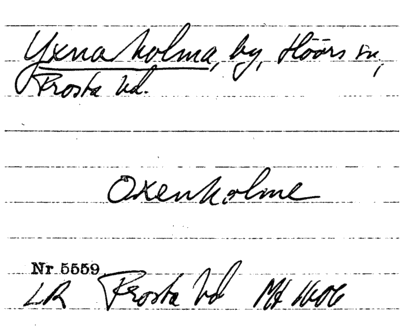 Yxnaholma, by, Höörs sn,
Frosta hd.
Oxenholme
Nr. 5559
LR Frosta hd Ml 1606